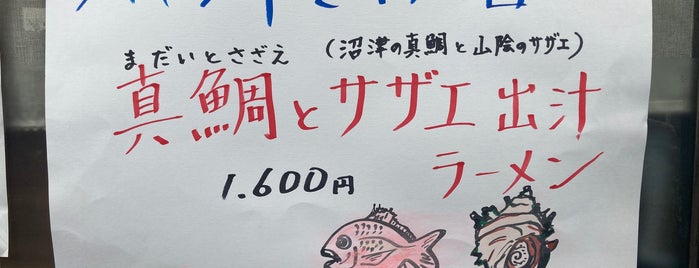 まだいとさざえ (沼津の真鯛と山陰のサザエ)
真鯛とサザエ出汁
ラーメン
1.600円